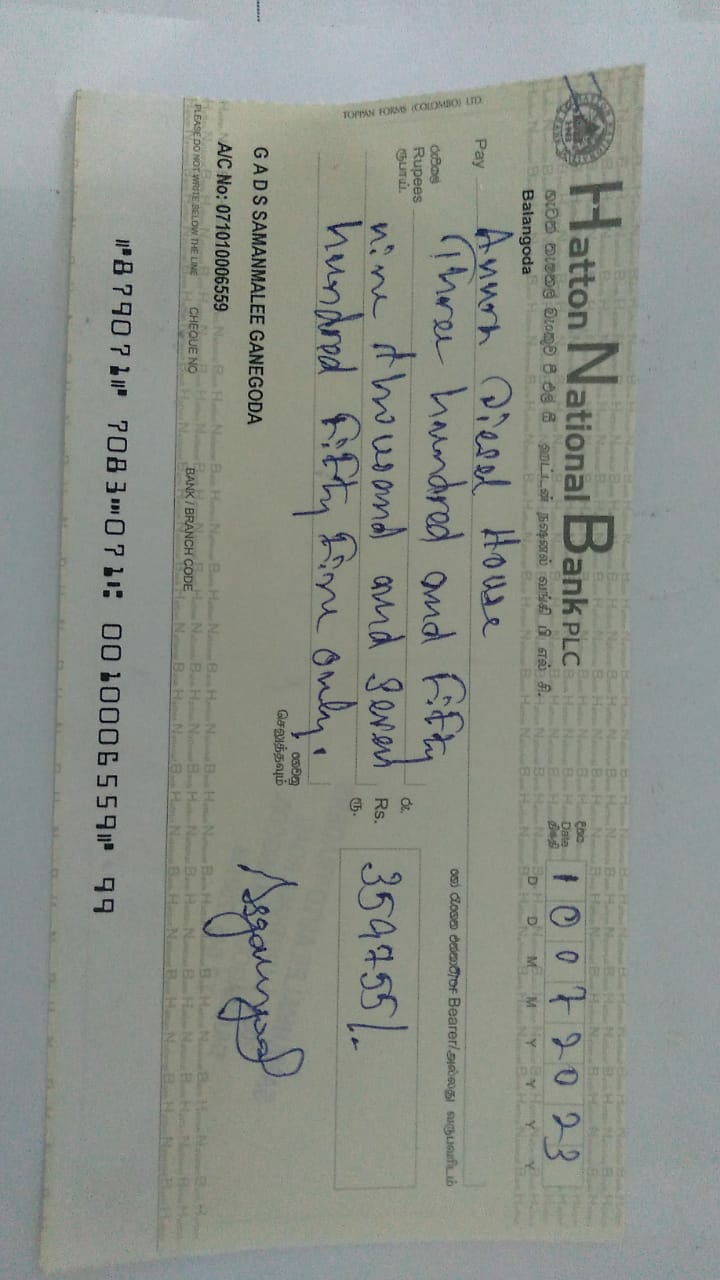 Hatton National Bank PLC
හැටන් නැෂනල් බැංකුව පී එල් සී ஹட்டன் நஷனல் வங்கி பி எல் சி.
Balangoda
දිනය
Date
திகதி
1 0 0 7 2 0 2 3
D D M M Y Y Y Y
Pay Annon Diesel House
හෝ රැගෙන එන්නාට Bearer/அல்லது வருபவரிடம்
රුපියල්
Rupees Three hundred and Fifty
ரூபாய்.
nine thousand and Seven
hundred Fifty Five only.
රු.
Rs. 359755/-
ரூ.
ගෙවනු
செலுத்தவும்
G A D S SAMANMALEE GANEGODA
A/C No: 071010006559
PLEASE DO NOT WRITE BELOW THE LINE CHEQUE NO BANK / BRANCH CODE
⑈879071⑈ 7083⑉071⑆ 0010006559⑈ 99
TOPPAN FORMS (COLOMBO) LTD.